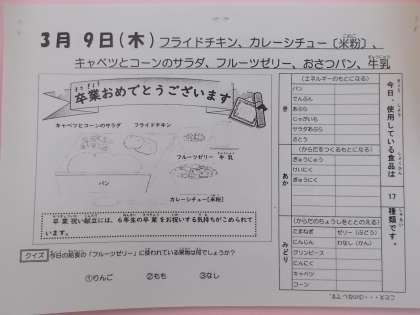 3月 9日(木) フライドチキン、カレーシチュー〔米粉〕、
キャベツとコーンのサラダ、フルーツゼリー、おさつパン、牛乳
卒業おめでとうございます
キャベツとコーンのサラダ フライドチキン
フルーツゼリー 牛乳
パン
カレーシチュー〔米粉〕
卒業祝い献立には、6年生の卒業をお祝いする気持ちがこめられて
います。
クイズ 今日の給食の「フルーツゼリー」に使われている果物は何でしょうか?
①りんご ②もも ③なし
き
(エネルギーのもとになる)
パン
でんぷん
あぶら
じゃがいも
サラダあぶら
さとう
あか
(からだをつくるもとになる)
ぎゅうにゅう
けいにく
ぎゅうにく
みどり
(からだのちょうしをととのえる)
たまねぎ ゼリー(ぶどう)
にんじん わなし(かん)
グリンピース
にんにく
キャベツ
コーン
今日、使用している食品は
17
種類です。